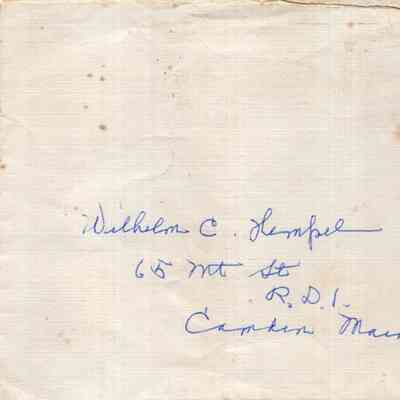 Wilhelm C. Hempel
65 Mt St
R.D.1.
Camden Main